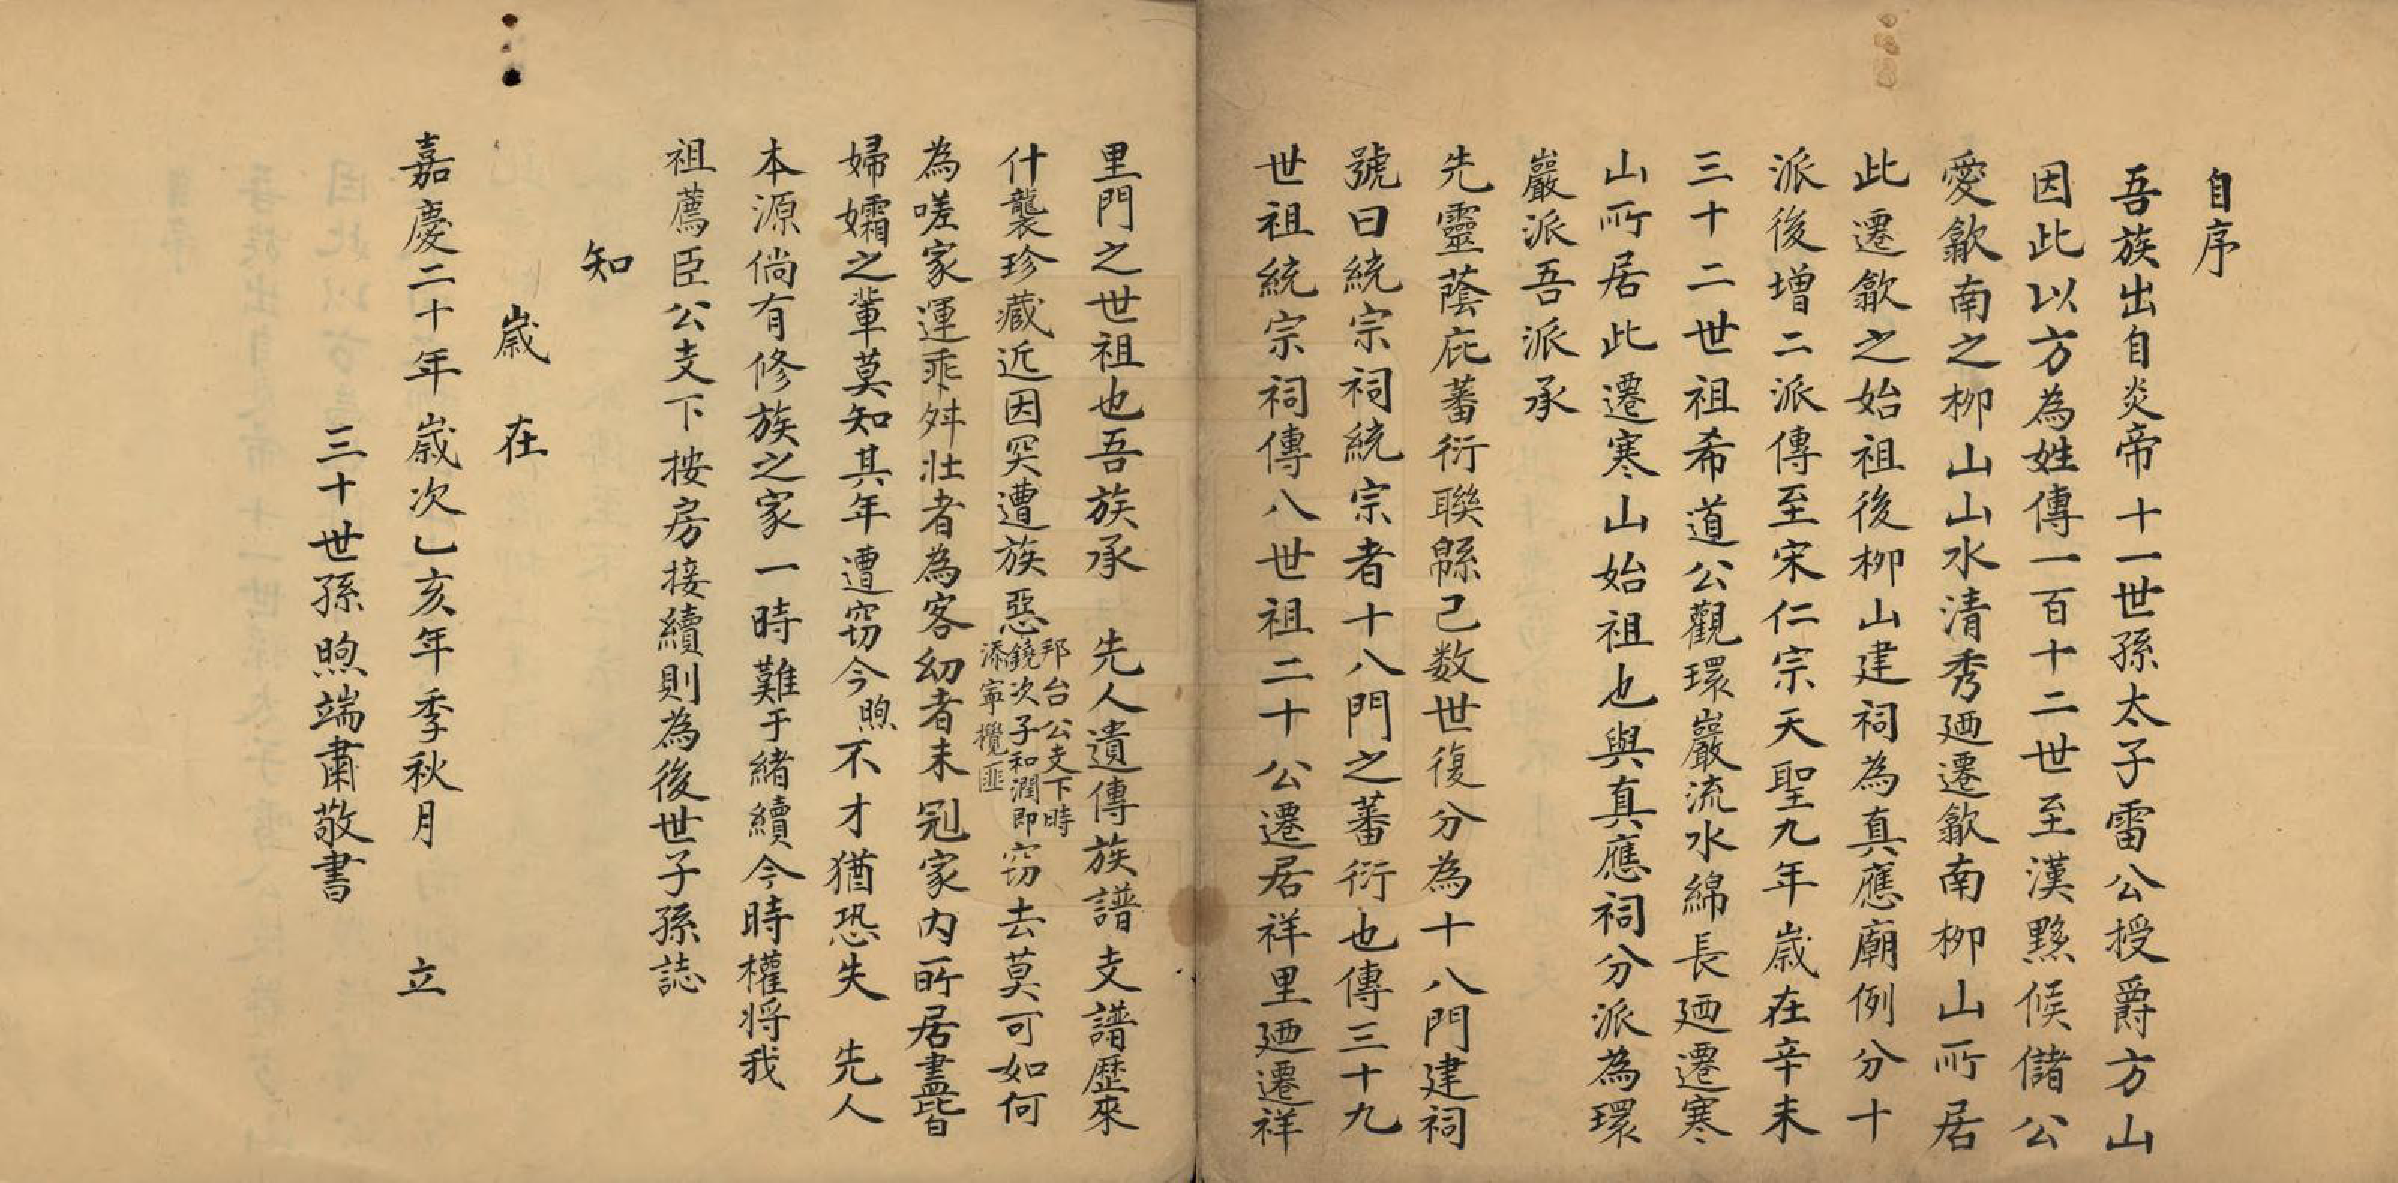 自序
吾族出自炎帝十一世孫太子雷公授爵方山
因此以方為姓傳一百十二世至漢黟候儲公
愛歙南之柳山山水清秀廼遷歙南柳山所居
此遷歙之始祖後柳山建祠為真應廟例分十
派後增二派傳至宋仁宗天聖九年歲在辛未
三十二世祖希道公觀環巖流水綿長廼遷寒
山所居此遷寒山始祖也與真應祠分派為環
巖派吾派承
先靈蔭庇蕃衍聯緜已数世復分為十八門建祠
號曰統宗祠統宗者十八門之蕃衍也傳三十九
世祖統宗祠傳八世祖二十公遷居祥里廼遷祥
里門之世祖也吾族承 先人遺傳族譜支譜歷來
什襲珍藏近因突遭族惡邦台公支下時鐃次子和潤即添寧攪匪窃去莫可如何
為嗟家運乖舛壯者為客幼者未冠家内所居盡皆
婦孀之輩莫知其年遭窃今煦不才猶恐失 先人
本源倘有修族之家一時難于緒續今時權將我
祖薦臣公支下按房接續則為後世子孫誌
知
歲在
嘉慶二十年歲次乙亥年季秋月 立
三十世孫煦端肅敬書